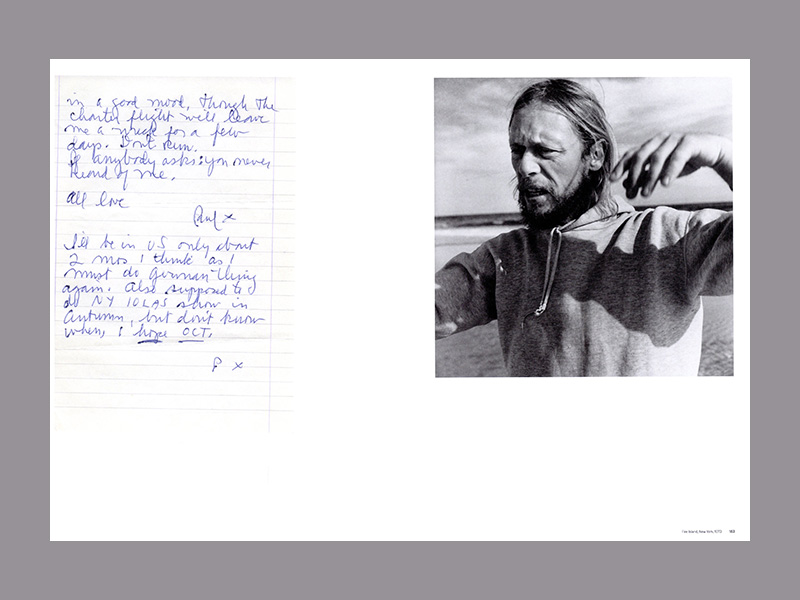 in a good mood, though the
charter flight will leave
me a wreck for a few
days. Don't run.
If anybody asks: you never
heard of me.
All love
Paul x
I'll be in US only about
2 mos I think as I
must do German thing
again. Also supposed to
do NY IOLAS show in
Autumn, but don't know
when, I hope OCT.
P x
Fire Island, New York, 1970